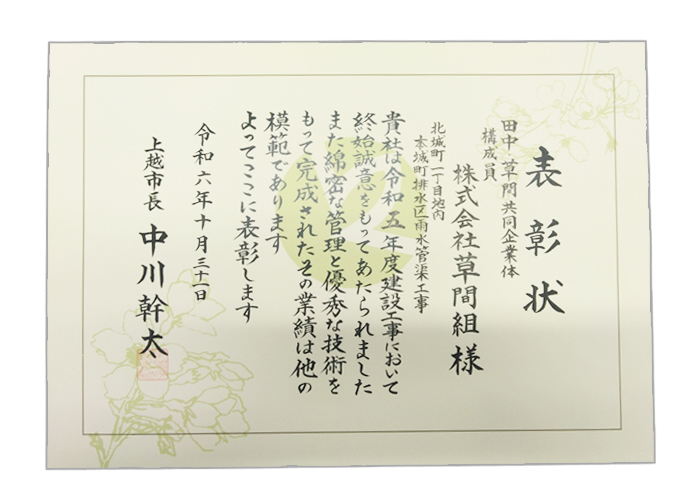 表彰状
田中・草間共同企業体
構成員
株式会社草間組様
北城町一丁目地内
本城町排水区雨水管渠工事
貴社は令和五年度建設工事において
終始誠意をもってあたられました
また綿密な管理と優秀な技術を
もって完成されたその業績は他の
模範であります
よってここに表彰します
令和六年十月三十一日
上越市長 中川幹太